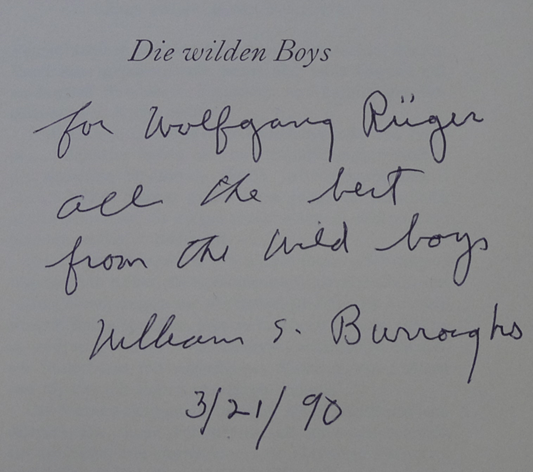 Die wilden Boys
for Wolfgang Rüger
all the best
from the wild boys
William S. Burroughs
3/21/90